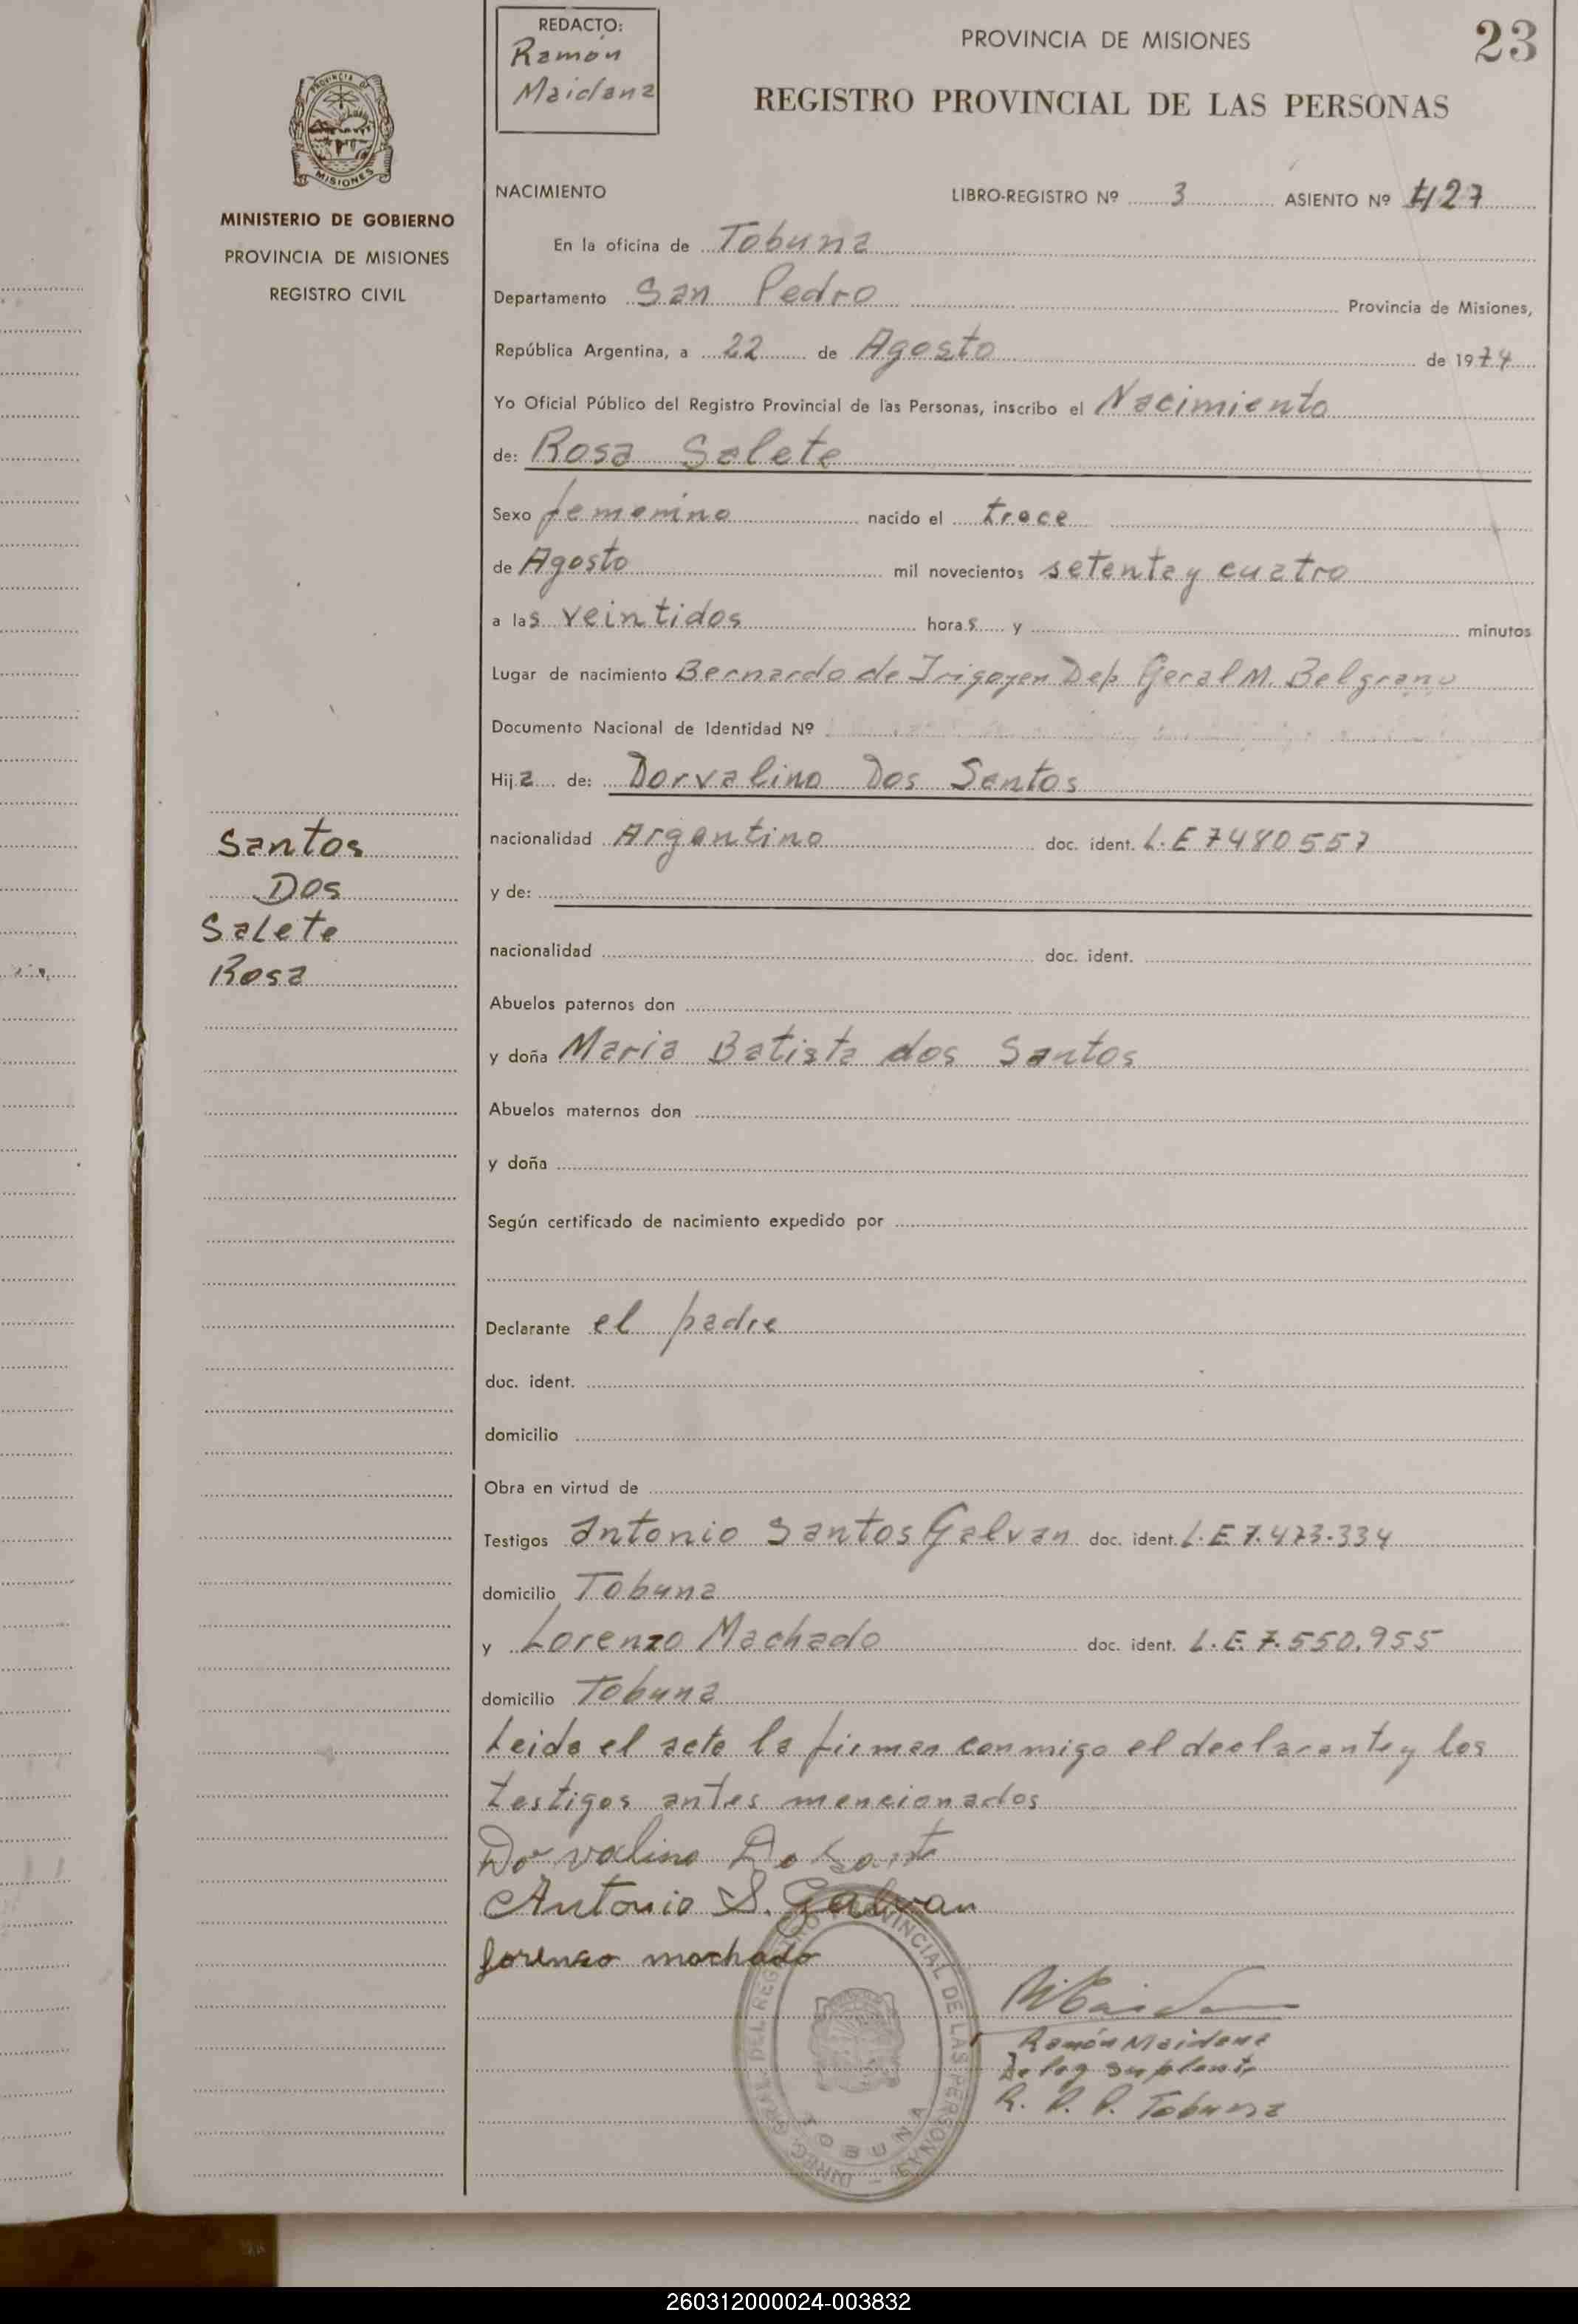 REDACTO:
Ramón
Maidana
PROVINCIA DE MISIONES
23
REGISTRO PROVINCIAL DE LAS PERSONAS
PROVINCIA DE
MISIONES
MINISTERIO DE GOBIERNO
PROVINCIA DE MISIONES
REGISTRO CIVIL
NACIMIENTO LIBRO-REGISTRO Nº 3 ASIENTO Nº 427
En la oficina de Tobuna
Departamento San Pedro Provincia de Misiones,
República Argentina, a 22 de Agosto de 1974
Yo Oficial Público del Registro Provincial de las Personas, inscribo el Nacimiento
de: Rosa Salete
Sexo femenino nacido el trece
de Agosto mil novecientos setenta y cuatro
a las veintidos horas y minutos
Lugar de nacimiento Bernardo de Irigoyen Dep. Geral M. Belgrano
Documento Nacional de Identidad Nº
Hija de: Dorvalino Dos Santos
nacionalidad Argentino doc. ident. L.E 7480557
y de:
nacionalidad doc. ident.
Santos
Dos
Salete
Rosa
Abuelos paternos don
y doña Maria Batista dos Santos
Abuelos maternos don
y doña
Según certificado de nacimiento expedido por
Declarante el padre
doc. ident.
domicilio
Obra en virtud de
Testigos Antonio Santos Galvan doc. ident. L.E.7.473.334
domicilio Tobuna
y Lorenzo Machado doc. ident. L.E.7.550.955
domicilio Tobuna
Leida el acta la firman conmigo el declarante y los
testigos antes mencionados
Dorvalino Do Sant
Antonio S. Galvan
Lorenzo machado
DIREC. GRAL. DEL REGISTRO PROVINCIAL DE LAS PERSONAS
TOBUNA
Ramón Maidana
Deleg Suplente
R. P. P. Tobuna
260312000024-003832